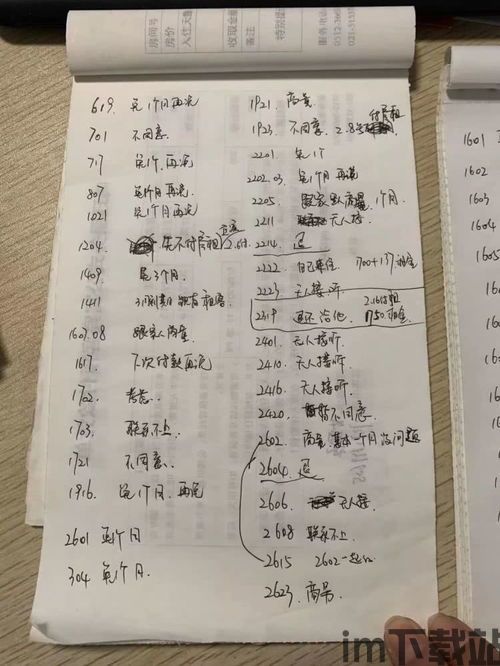 房间号
房价
入住天
收取金
备注
特别提
服务电
0512-366
021-515
619. 免1个月再说
701 不同意.
717 免1个月再说
807 免1个月再说
1021 免1个月再说
1204 先不付房租
1409 免3个月.
1411
1607.08 跟家人商量
1617. 下次付款再说
1702 考虑..
1703. 联系不上.
1721 不同意.
1916. 免1个月 再说
2601 免1个月
304 免1个月.
1921. 商量
1923. 不同意. 2.8
2201 免1个
2202.03 免1个月再说
2205. 商量. 1个月
2211 无人接
2214. 退
2222. 自己要住 1700+137租金
2223. 无人接听
2319 1750租金
2401. 无人接听
2410. 无人接听.
2416 无人接听.
2420. 不同意.
2602. 商量 基本一个月没问题
2604. 退
2606. 无人接
2608 联系不上
2615 2602一起
2623. 商量
1601
1602
1603
1604
1605
160
16
1
im下载站